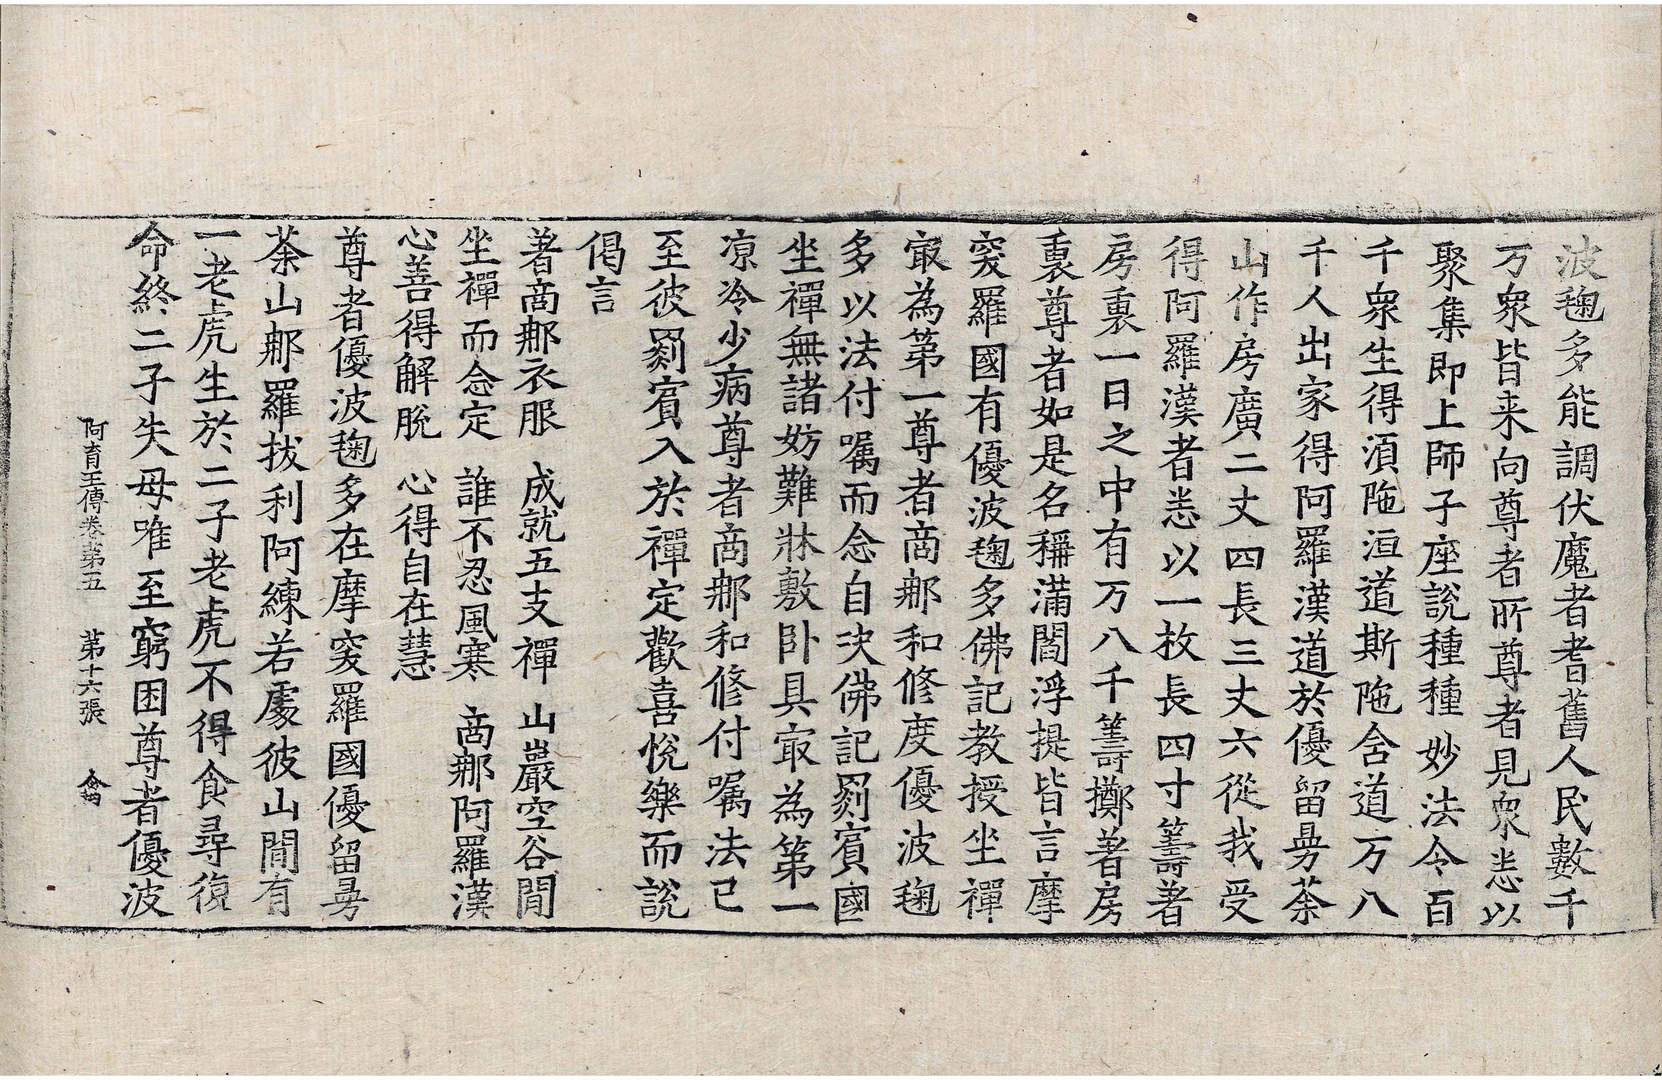 波䅳多能調伏魔者耆舊人民數千
万衆皆来向尊者所尊者見衆悉以
聚集即上師子座說種種妙法令百
千衆生得湏陁洹道斯陁含道万八
千人出家得阿羅漢道於優留曼荼
山作房廣二丈四長三丈六從我受
得阿羅漢者悉以一枚長四寸籌著
房裏一日之中有万八千籌擲著房
裏尊者如是名稱滿閻浮提皆言摩
突羅國有優波䅳多佛記教授坐禪
㝡為第一尊者商那和修度優波䅳
多以法付嘱而念自决佛記罽賔國
坐禪無諸妨難牀敷卧具㝡為第一
凉冷少病尊者商那和修付嘱法已
至彼罽賔入於禪定歡喜悅樂而說
偈言
著商那衣服　成就五支禪　山巖空谷間
坐禪而念定　誰不忍風寒　商那阿羅漢
心善得解脫　心得自在慧
尊者優波䅳多在摩突羅國優留曼
荼山那羅拔利阿練若處彼山間有
一老虎生於二子老虎不得食尋復
命終二子失母唯至窮困尊者優波
阿育王傳卷第五　第十六張